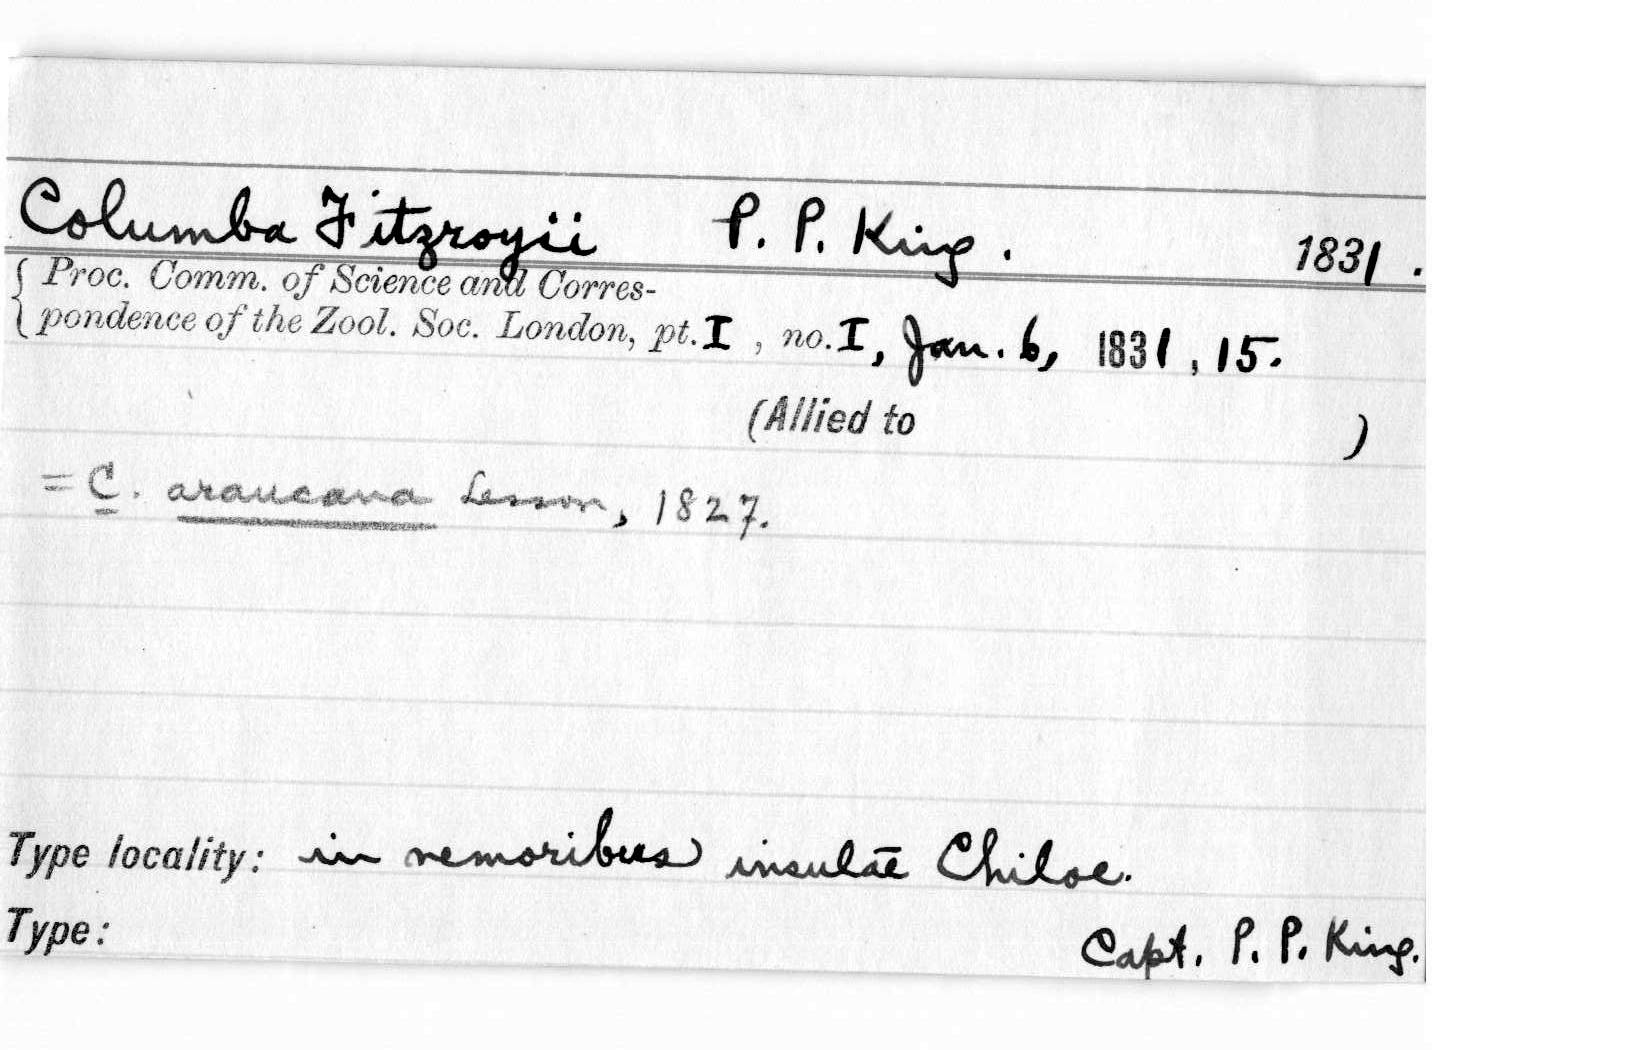 Columba Fitzroyii P. P. King. 1831.
Proc. Comm. of Science and Corres-
pondence of the Zool. Soc. London, pt. I, no. I, Jan. 6, 1831, 15.
(Allied to )
= C. araucana Lesson, 1827.
Type locality: in nemoribus insulae Chiloe.
Type: Capt. P. P. King.